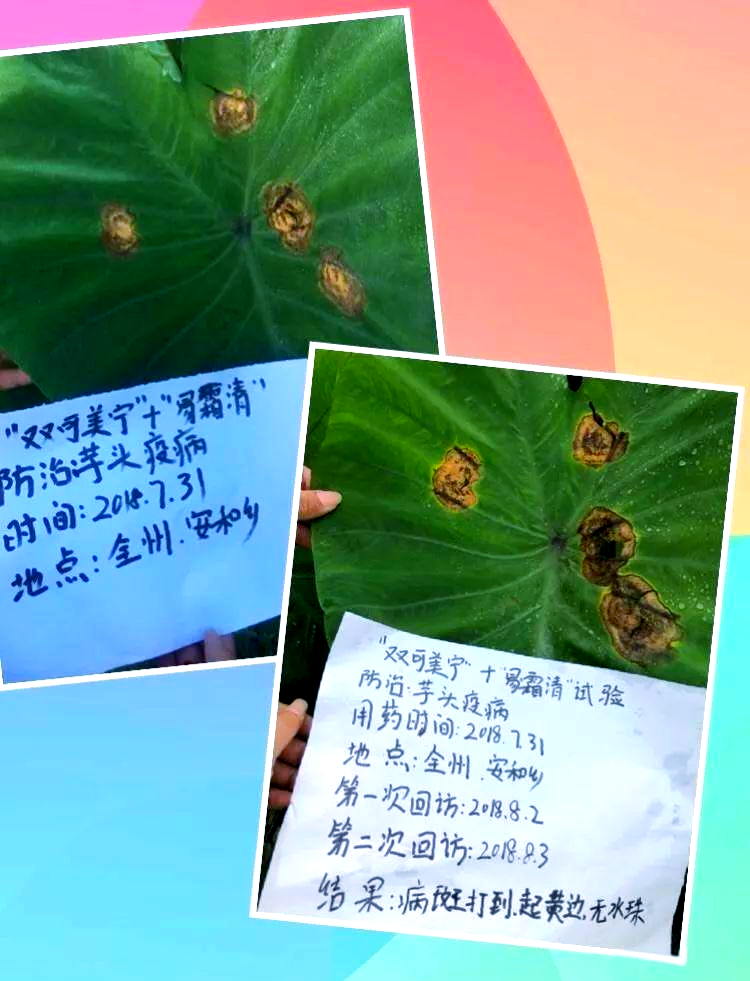 "双可美宁"+"霜清"
防治芋头疫病
时间:2018.7.31
地点:全州.安和乡
"双可美宁"+"霜清"试验
防治:芋头疫病
用药时间:2018.7.31
地点:全州.安和乡
第一次回访:2018.8.2
第二次回访:2018.8.3
结果:病斑打到.起黄边,无水珠